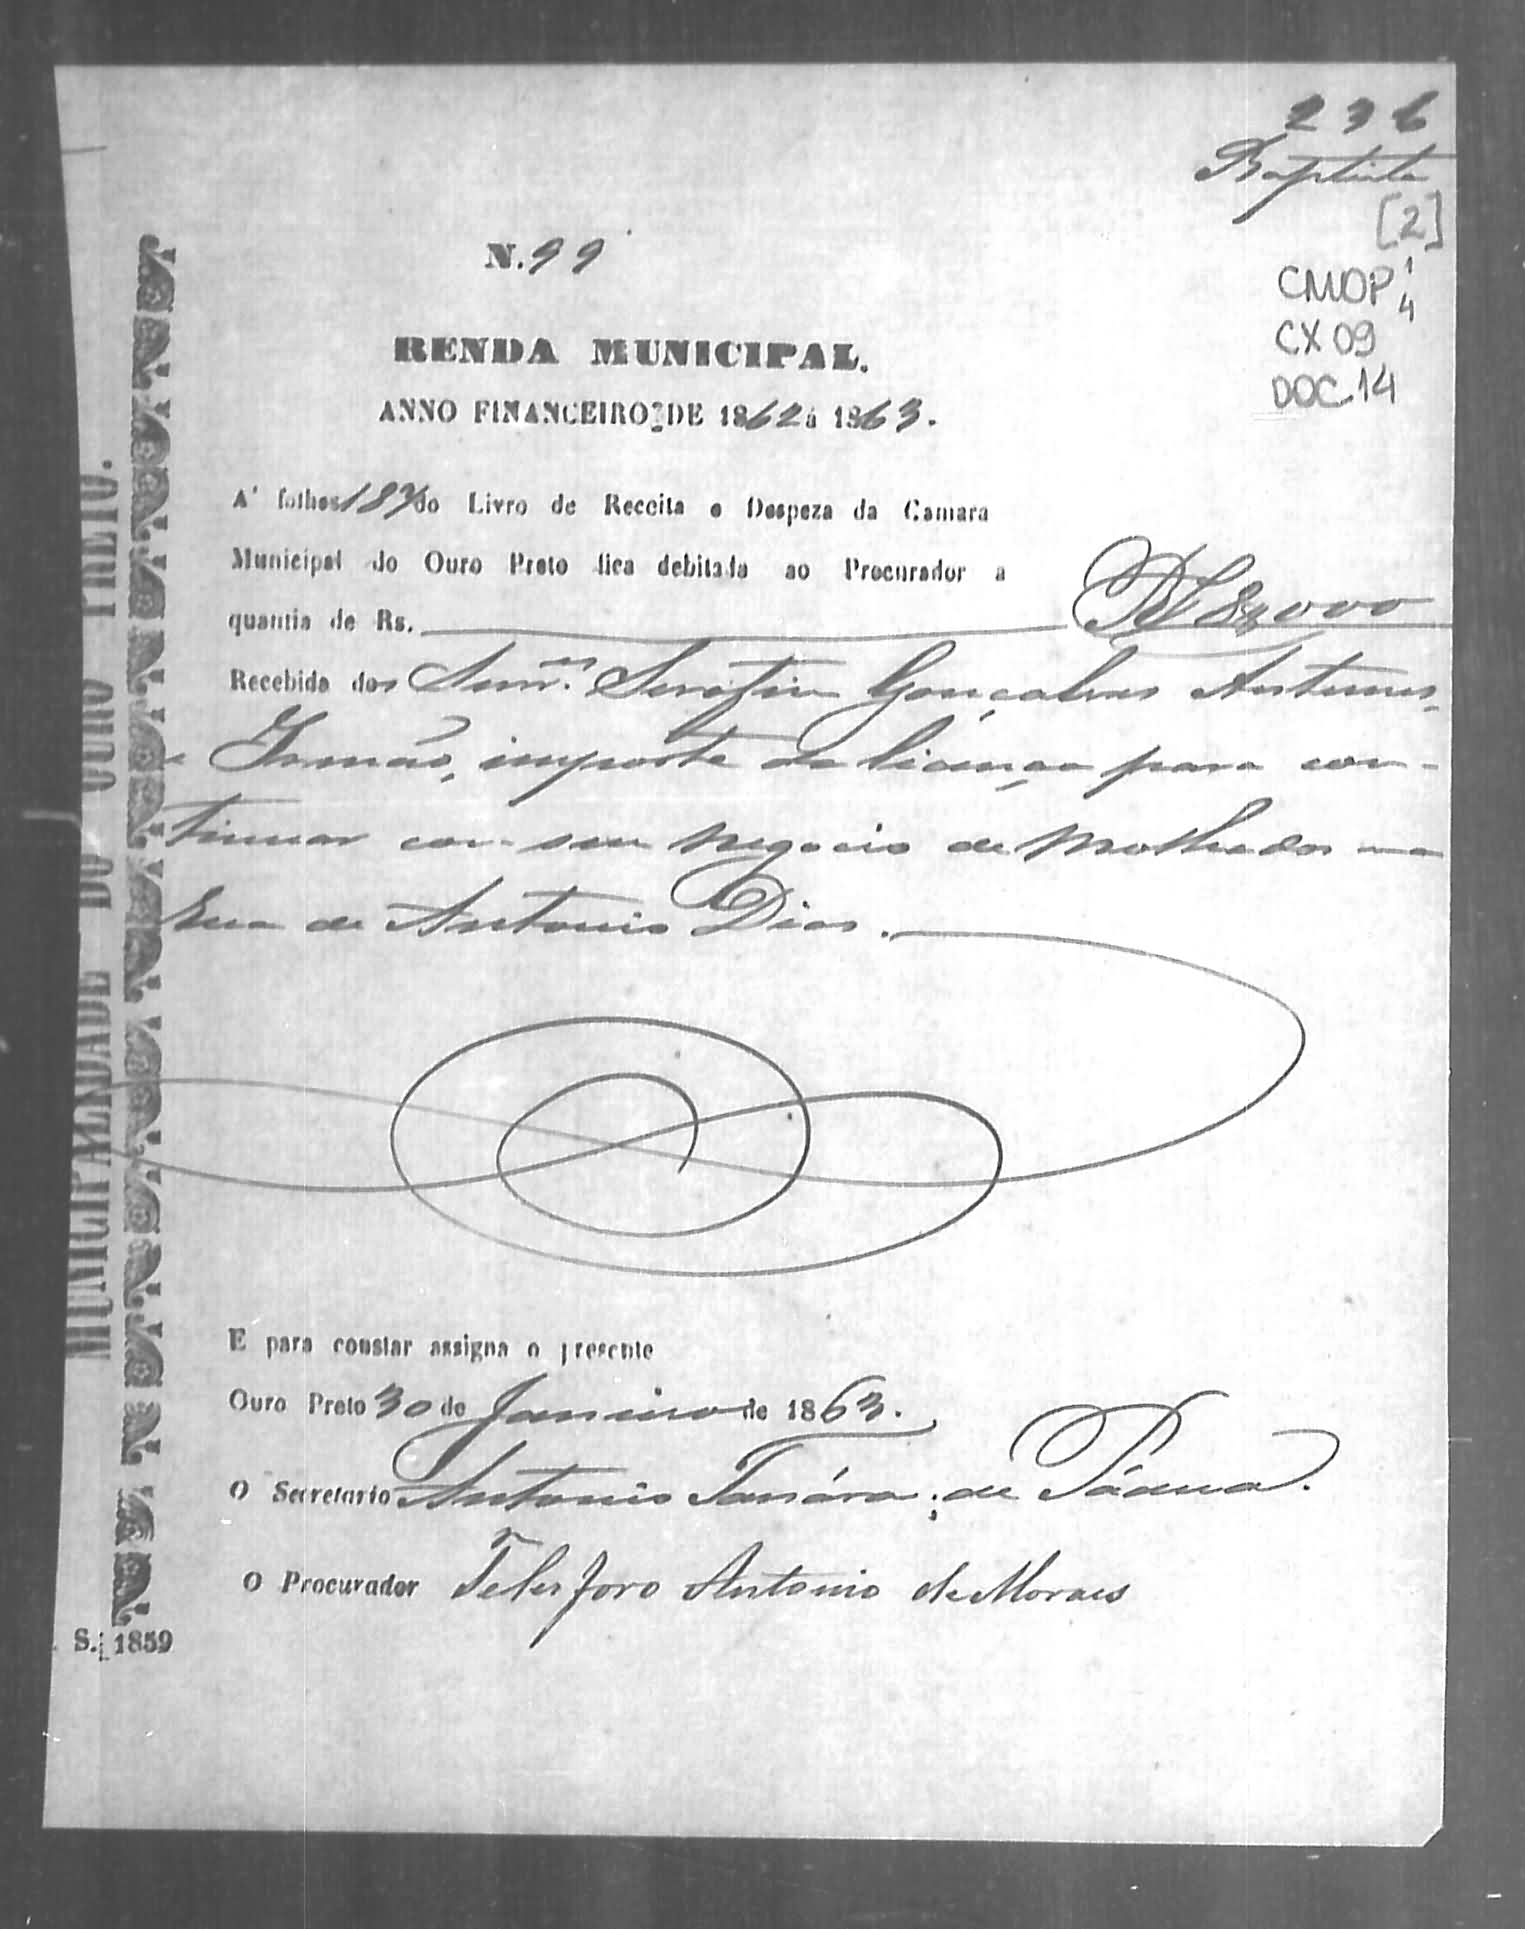 236
Baptista
[2]
CMOP 1/4
CX 09
DOC. 14
N. 99
RENDA MUNICIPAL.
ANNO FINANCEIRO DE 1862 á 1863.
A' folhas 187 do Livro de Receita e Despeza da Camara
Municipal do Ouro Preto fica debitada ao Procurador a
quantia de Rs. 8$000
Recebida dos Serafim Gonçalves Antunes,
e Irmão, importe da licença para con-
tinuar com seu negocio de molhados na
Rua de Antonio Dias.
E para constar assigna o presente
Ouro Preto 30 de Janeiro de 1863.
O Secretario Antonio de Pádua.
O Procurador Telesforo Antonio de Moraes
MUNICIPALIDADE DO OURO PRETO.
S. 1859